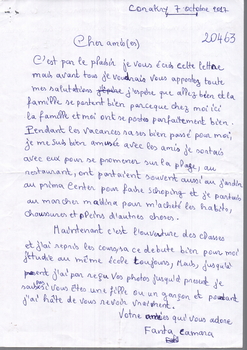 Conakry 7 octobre 2017
20463
Cher ami(es)
C'est par le plaisir je vous écris cette lettre
mais avant tous je voudrais vous apportez toute
mes salutations j'espère que allez bien et la
famille se portent bien parceque chez moi ici
la famille et moi ont se portes parfaitement bien.
Pendant les vacances sa ses bien passé pour moi,
je me suis bien amusée avec les amis je sortais
avec eux pour se promener sur la plage, au
restaurant, ont partaient souvent aussi au jardin
au prima Center pour faire shopping et je partais
au marcher madina pour m'acheté les habits,
chaussures et pleins d'autres choses.
Maintenant c'est l'ouverture des classes
et j'ai repris les cours sa ce debute bien pour moi
j'étudie au même école toujours, Mais, jusqu'à
present j'ai pas reçu vos photos jusqu'à present je
sais pas si vous êtes une fille ou un garçon et
j'ai hâte de vous revoir vraiment.
Votre amies qui vous adore
Fanta camara